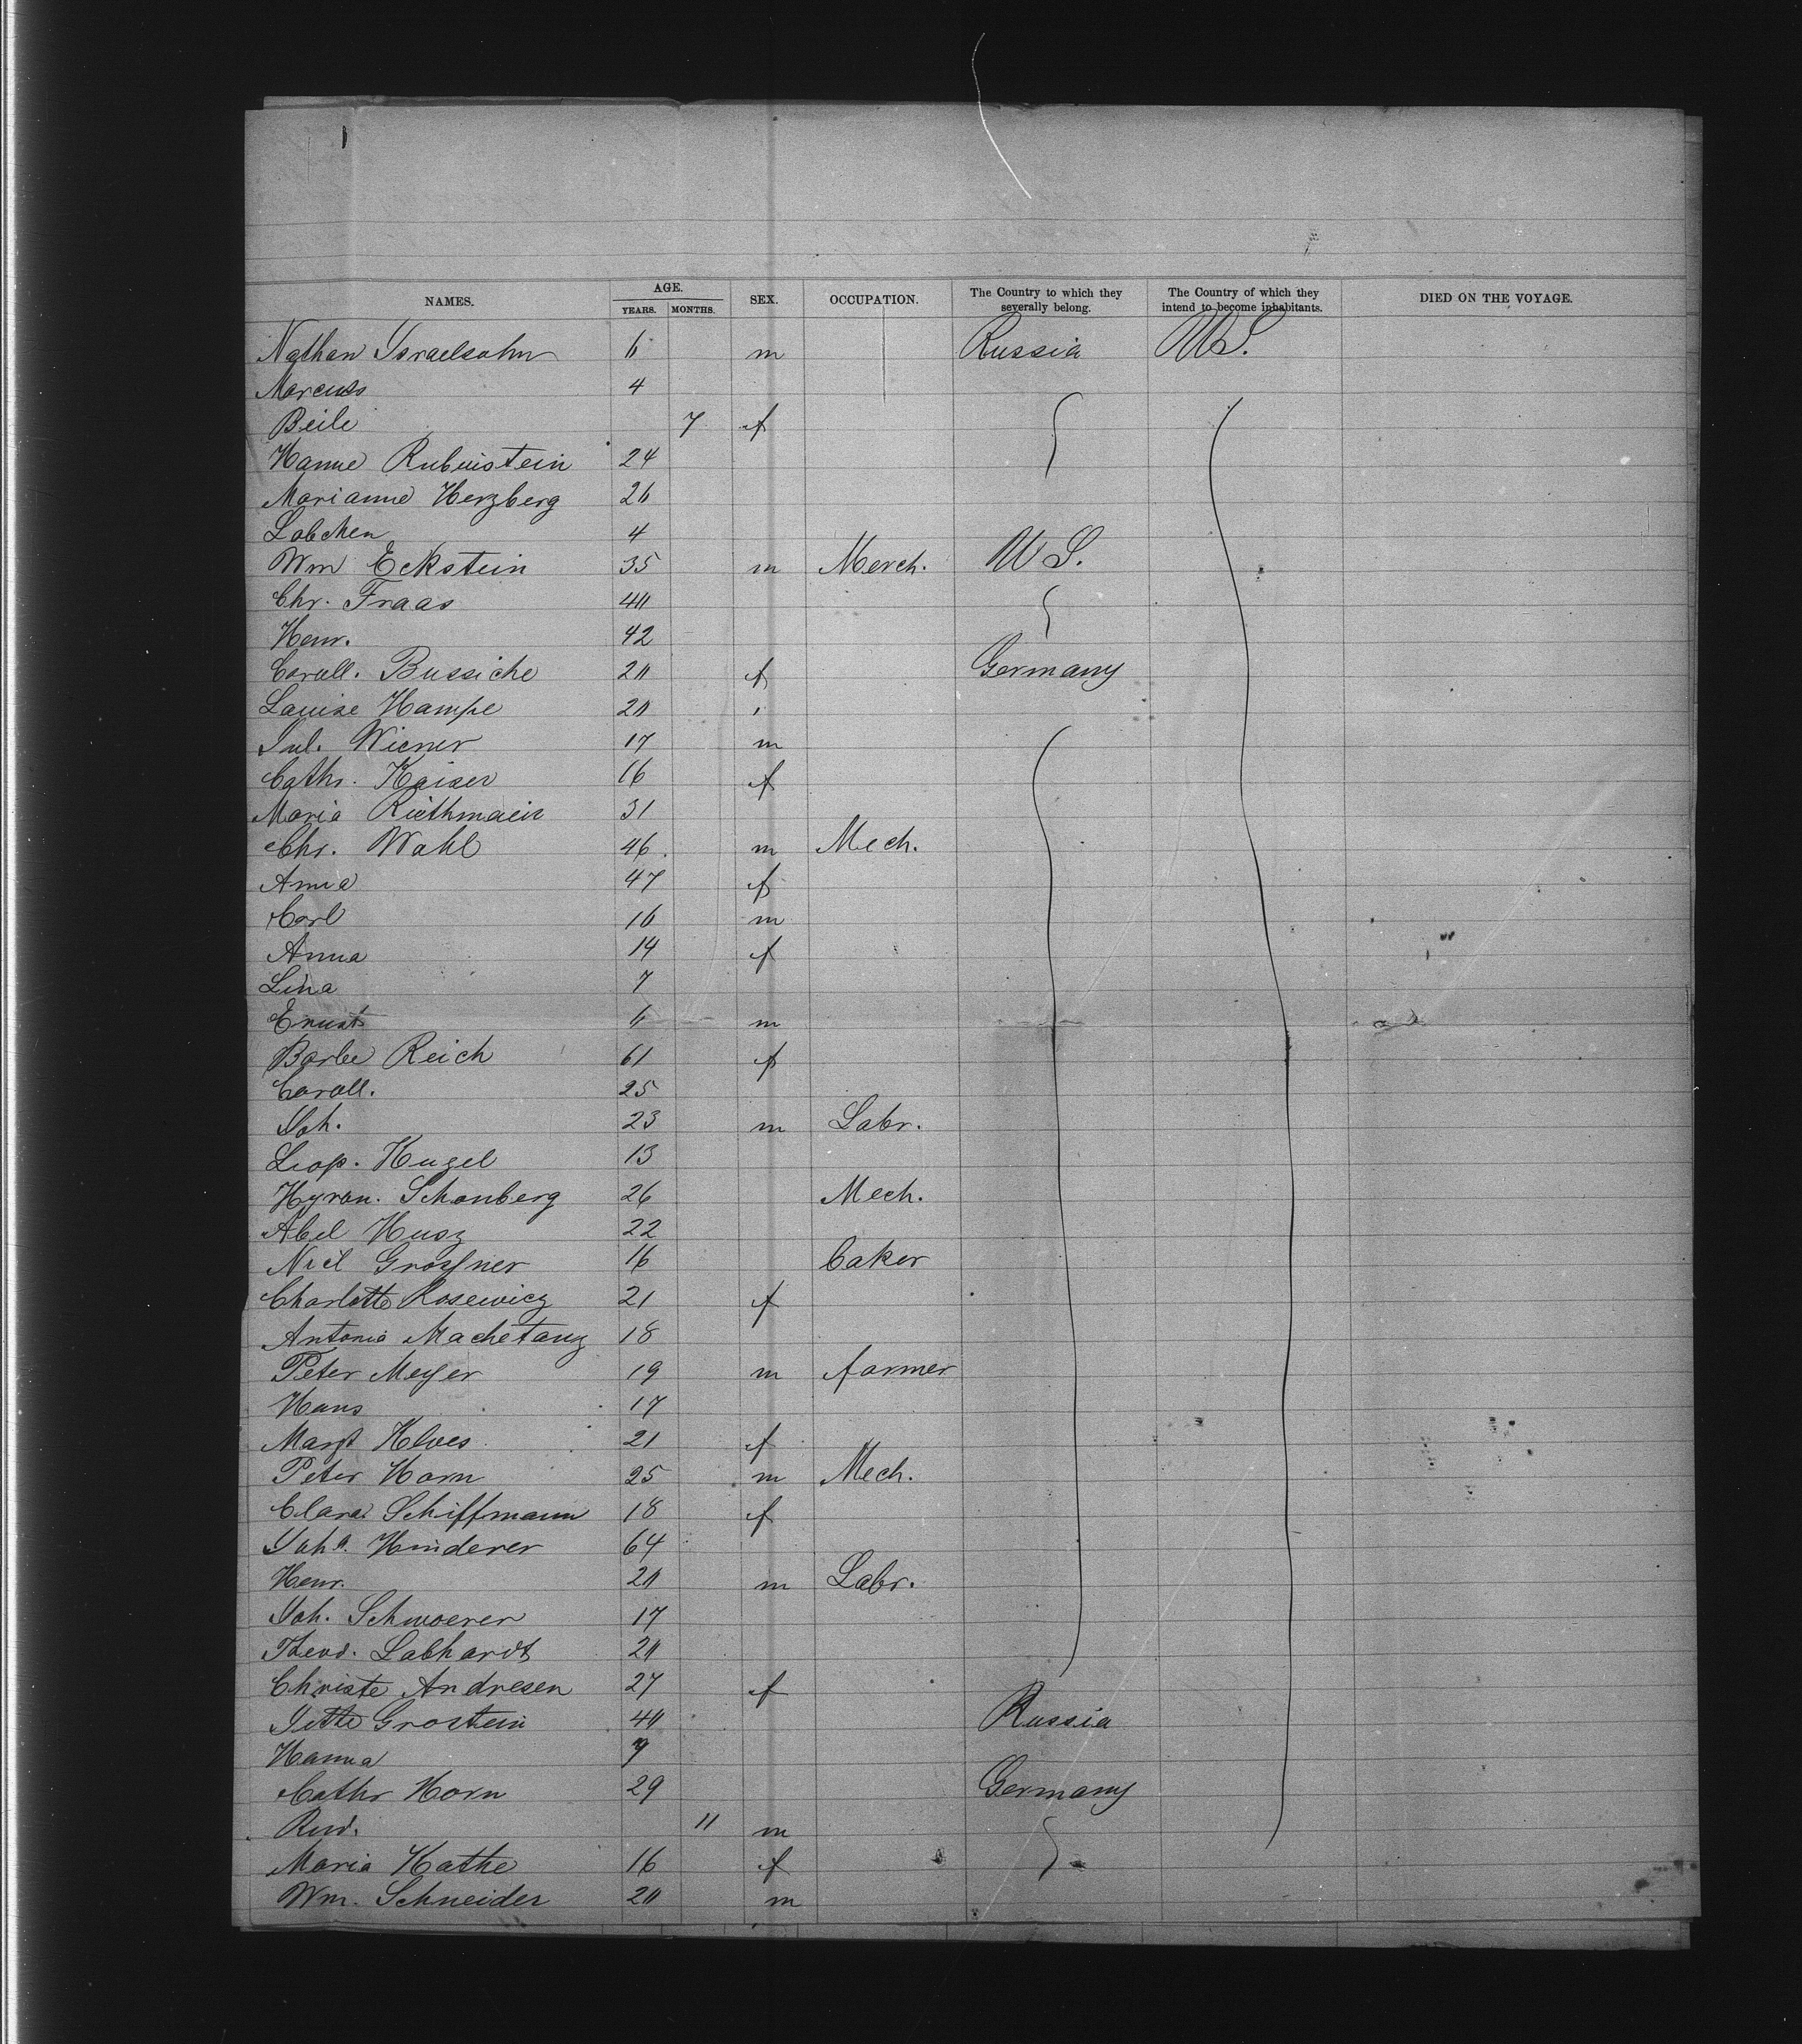 NAMES. AGE. YEARS. MONTHS. SEX. OCCUPATION. The Country to which they severally belong. The Country of which they intend to become inhabitants. DIED ON THE VOYAGE.
Nathan Israelsohn 6 m Russia U.S.
Marcus 4
Beile 7 f
Hanne Rubinstein 24
Marianne Herzberg 26
Labchen 4
Wm Eckstein 35 m Merch. U S.
Chr. Fraas 40
Henr. 42
Caroll. Bussiche 20 f Germany
Louise Hampe 20 "
Jul. Wiener 17 m
Cathr. Kaiser 16 f
Maria Riethmaier 31
Chr. Wahl 46 m Mech.
Anna 47 f
Carl 16 m
Anna 14 f
Lina 7
Ernst 6 m
Barbe Reich 61 f
Caroll. 25
Joh. 23 m Labr.
Leop. Kugel 13
Hyran. Schonberg 26 Mech.
Abel Husz 22
Niel 16 Baker
Charlotte Rosewicz 21 f
Antonia Machetanz 18
Peter Meyer 19 m farmer
Hans 17
Margt Klves 21 f
Peter Horn 25 m Mech.
Clara Schiffmann 18 f
Joha. Hinderer 64
Henr. 20 m Labr.
Joh. Schwoerer 17
Theod. Labhardt 20
Christe Andresen 27 f
Jette Grostein 40 Russia
Hanna 9
Cathr Horn 29 Germany
Rud. 11 m
Maria Kathe 16 f
Wm. Schneider 20 m